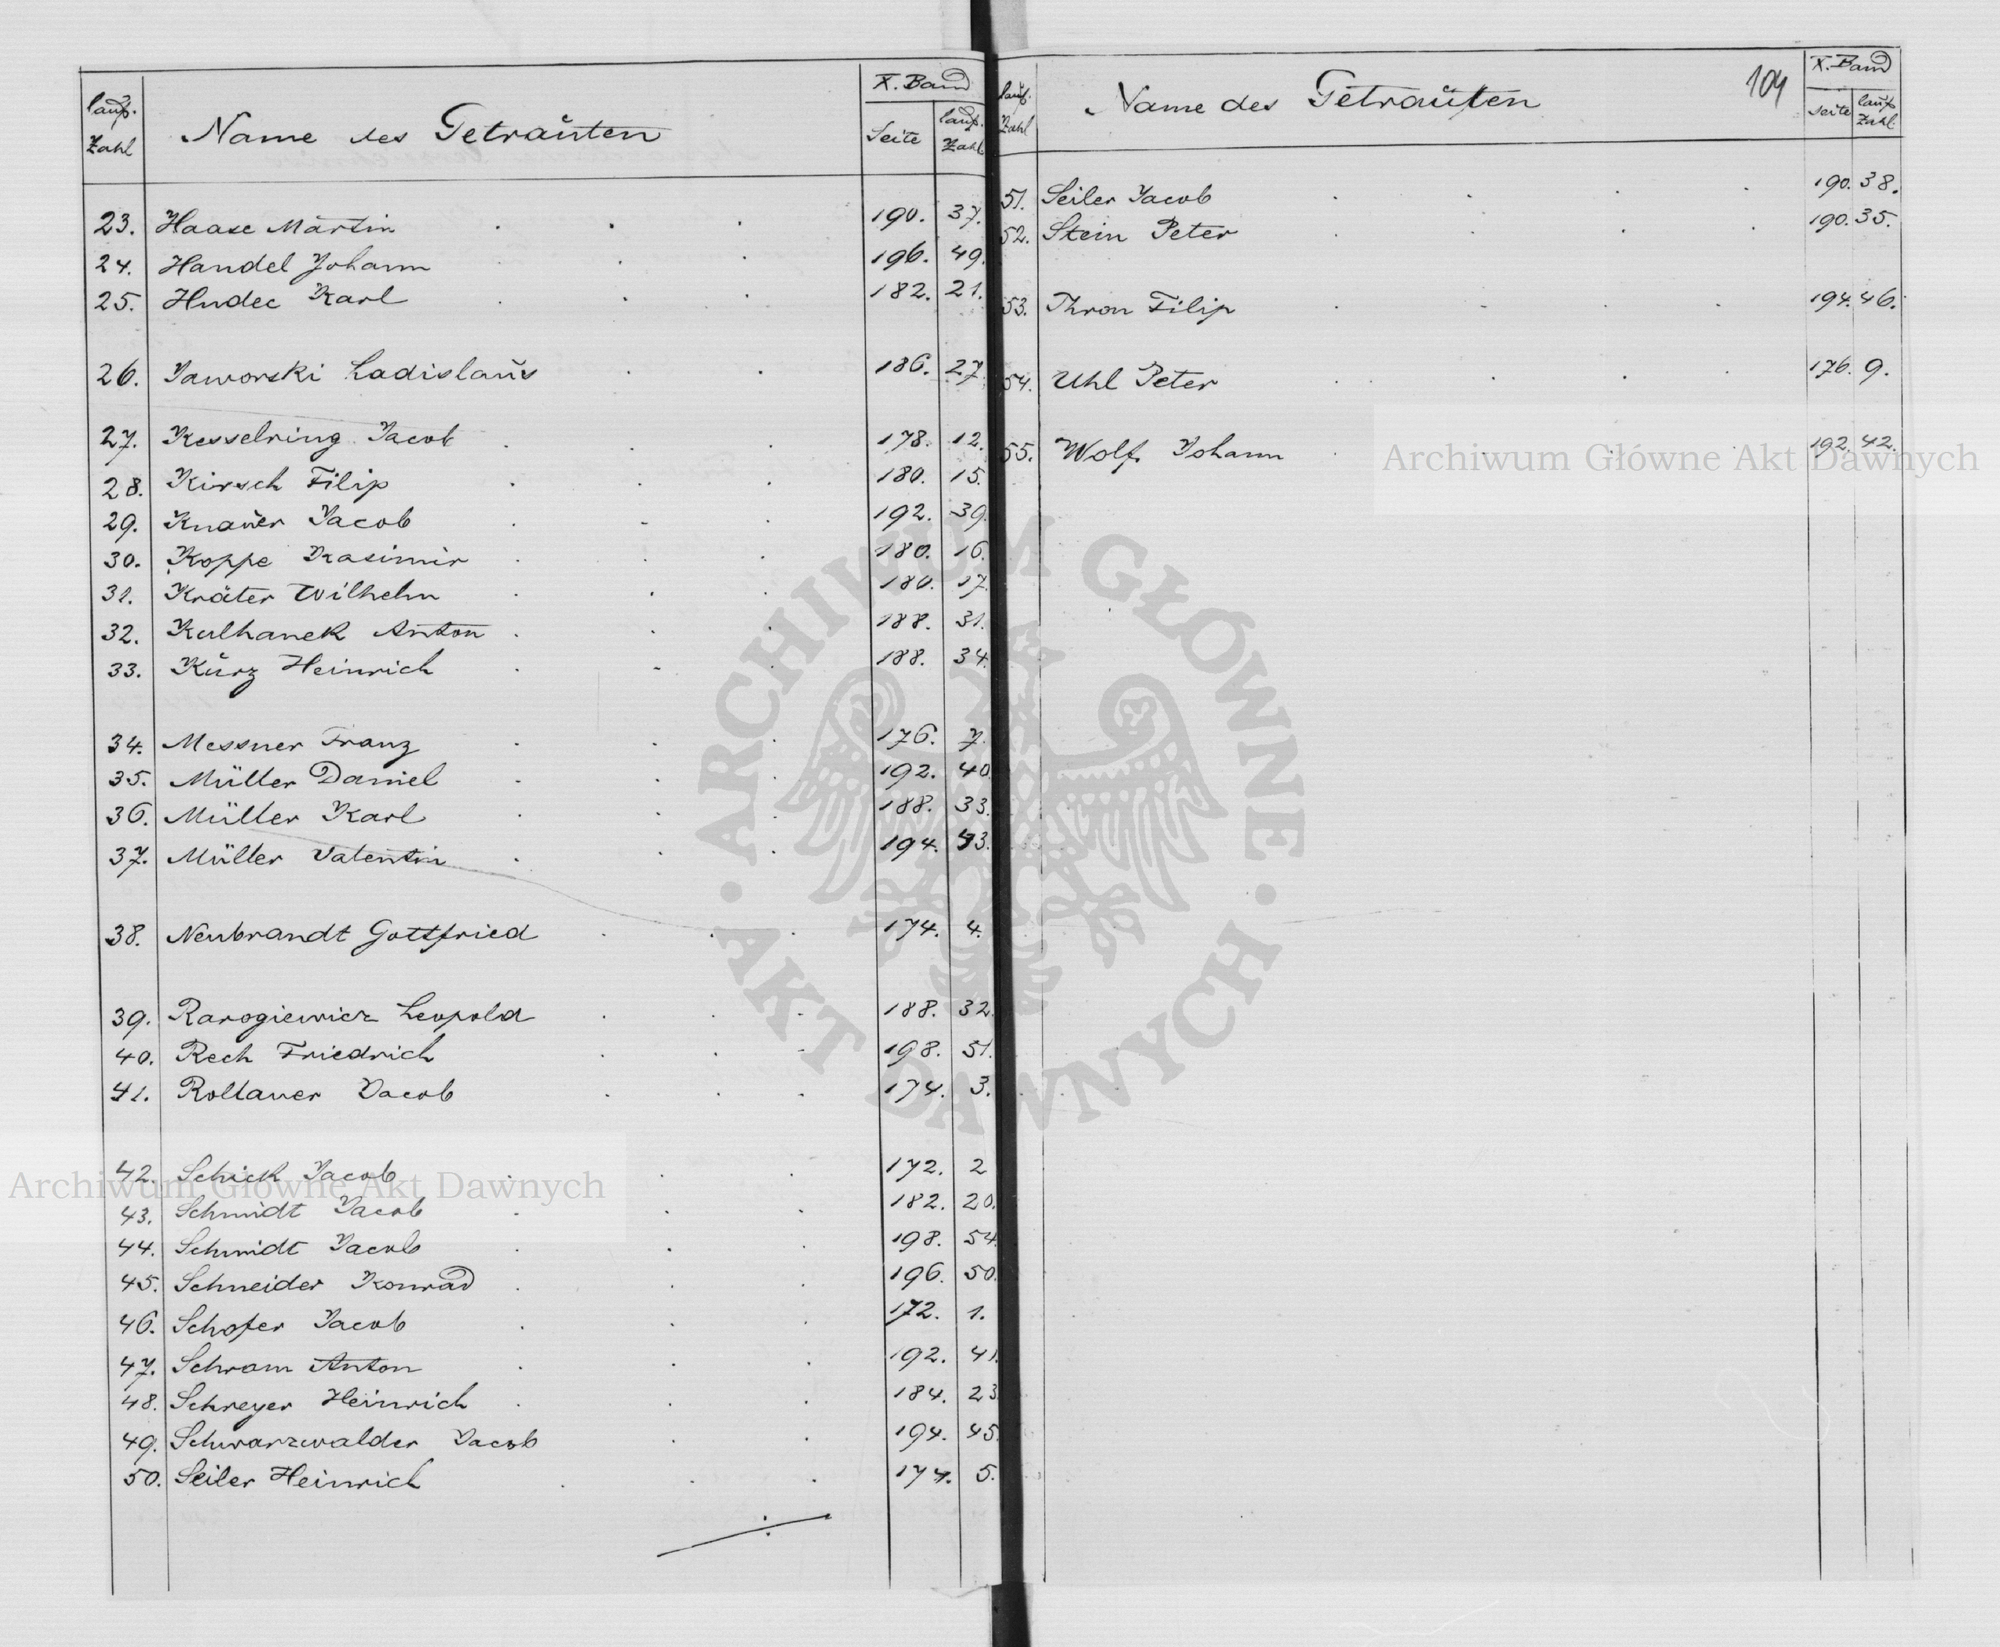 lauf. Zahl
Name des Getrauten
X. Band
Seite
lauf. Zahl
23. Haase Martin 190. 37.
24. Handel Johann 196. 49.
25. Hudec Karl 182. 21.
26. Jaworski Ladislaus 186. 27
27. Kesselring Jacob 178. 12.
28. Kirsch Filip 180. 15.
29. Knauer Jacob 192. 39.
30. Koppe Kasimir 180. 16.
31. Kräter Wilhelm 180. 17.
32. Kulhanek Anton 188. 31.
33. Kurz Heinrich 188. 34.
34. Messner Franz 176. 7.
35. Müller Daniel 192. 40.
36. Müller Karl 188. 33.
37. Müller Valentin 194. 43.
38. Neubrandt Gottfried 174. 4.
39. Rarogiewicz Leopold 188. 32.
40. Rech Friedrich 198. 51.
41. Rollauer Jacob 174. 3.
42. Schick Jacob 172. 2
43. Schmidt Jacob 182. 20.
44. Schmidt Jacob 198. 54.
45. Schneider Konrad 196. 50.
46. Schofer Jacob 172. 1.
47. Schram Anton 192. 41.
48. Schreyer Heinrich 184. 23
49. Schwarzwalder Jacob 194. 45.
50. Seiler Heinrich 174. 5.
Archiwum Główne Akt Dawnych
104
lauf. Zahl
Name des Getrauten
X. Band
Seite
lauf. Zahl
51. Seiler Jacob 190. 38.
52. Stein Peter 190. 35.
53. Thron Filip 194. 46.
54. Uhl Peter 176. 9.
55. Wolf Johann 192. 42.
Archiwum Główne Akt Dawnych
ARCHIWUM GŁÓWNE · AKT DAWNYCH ·